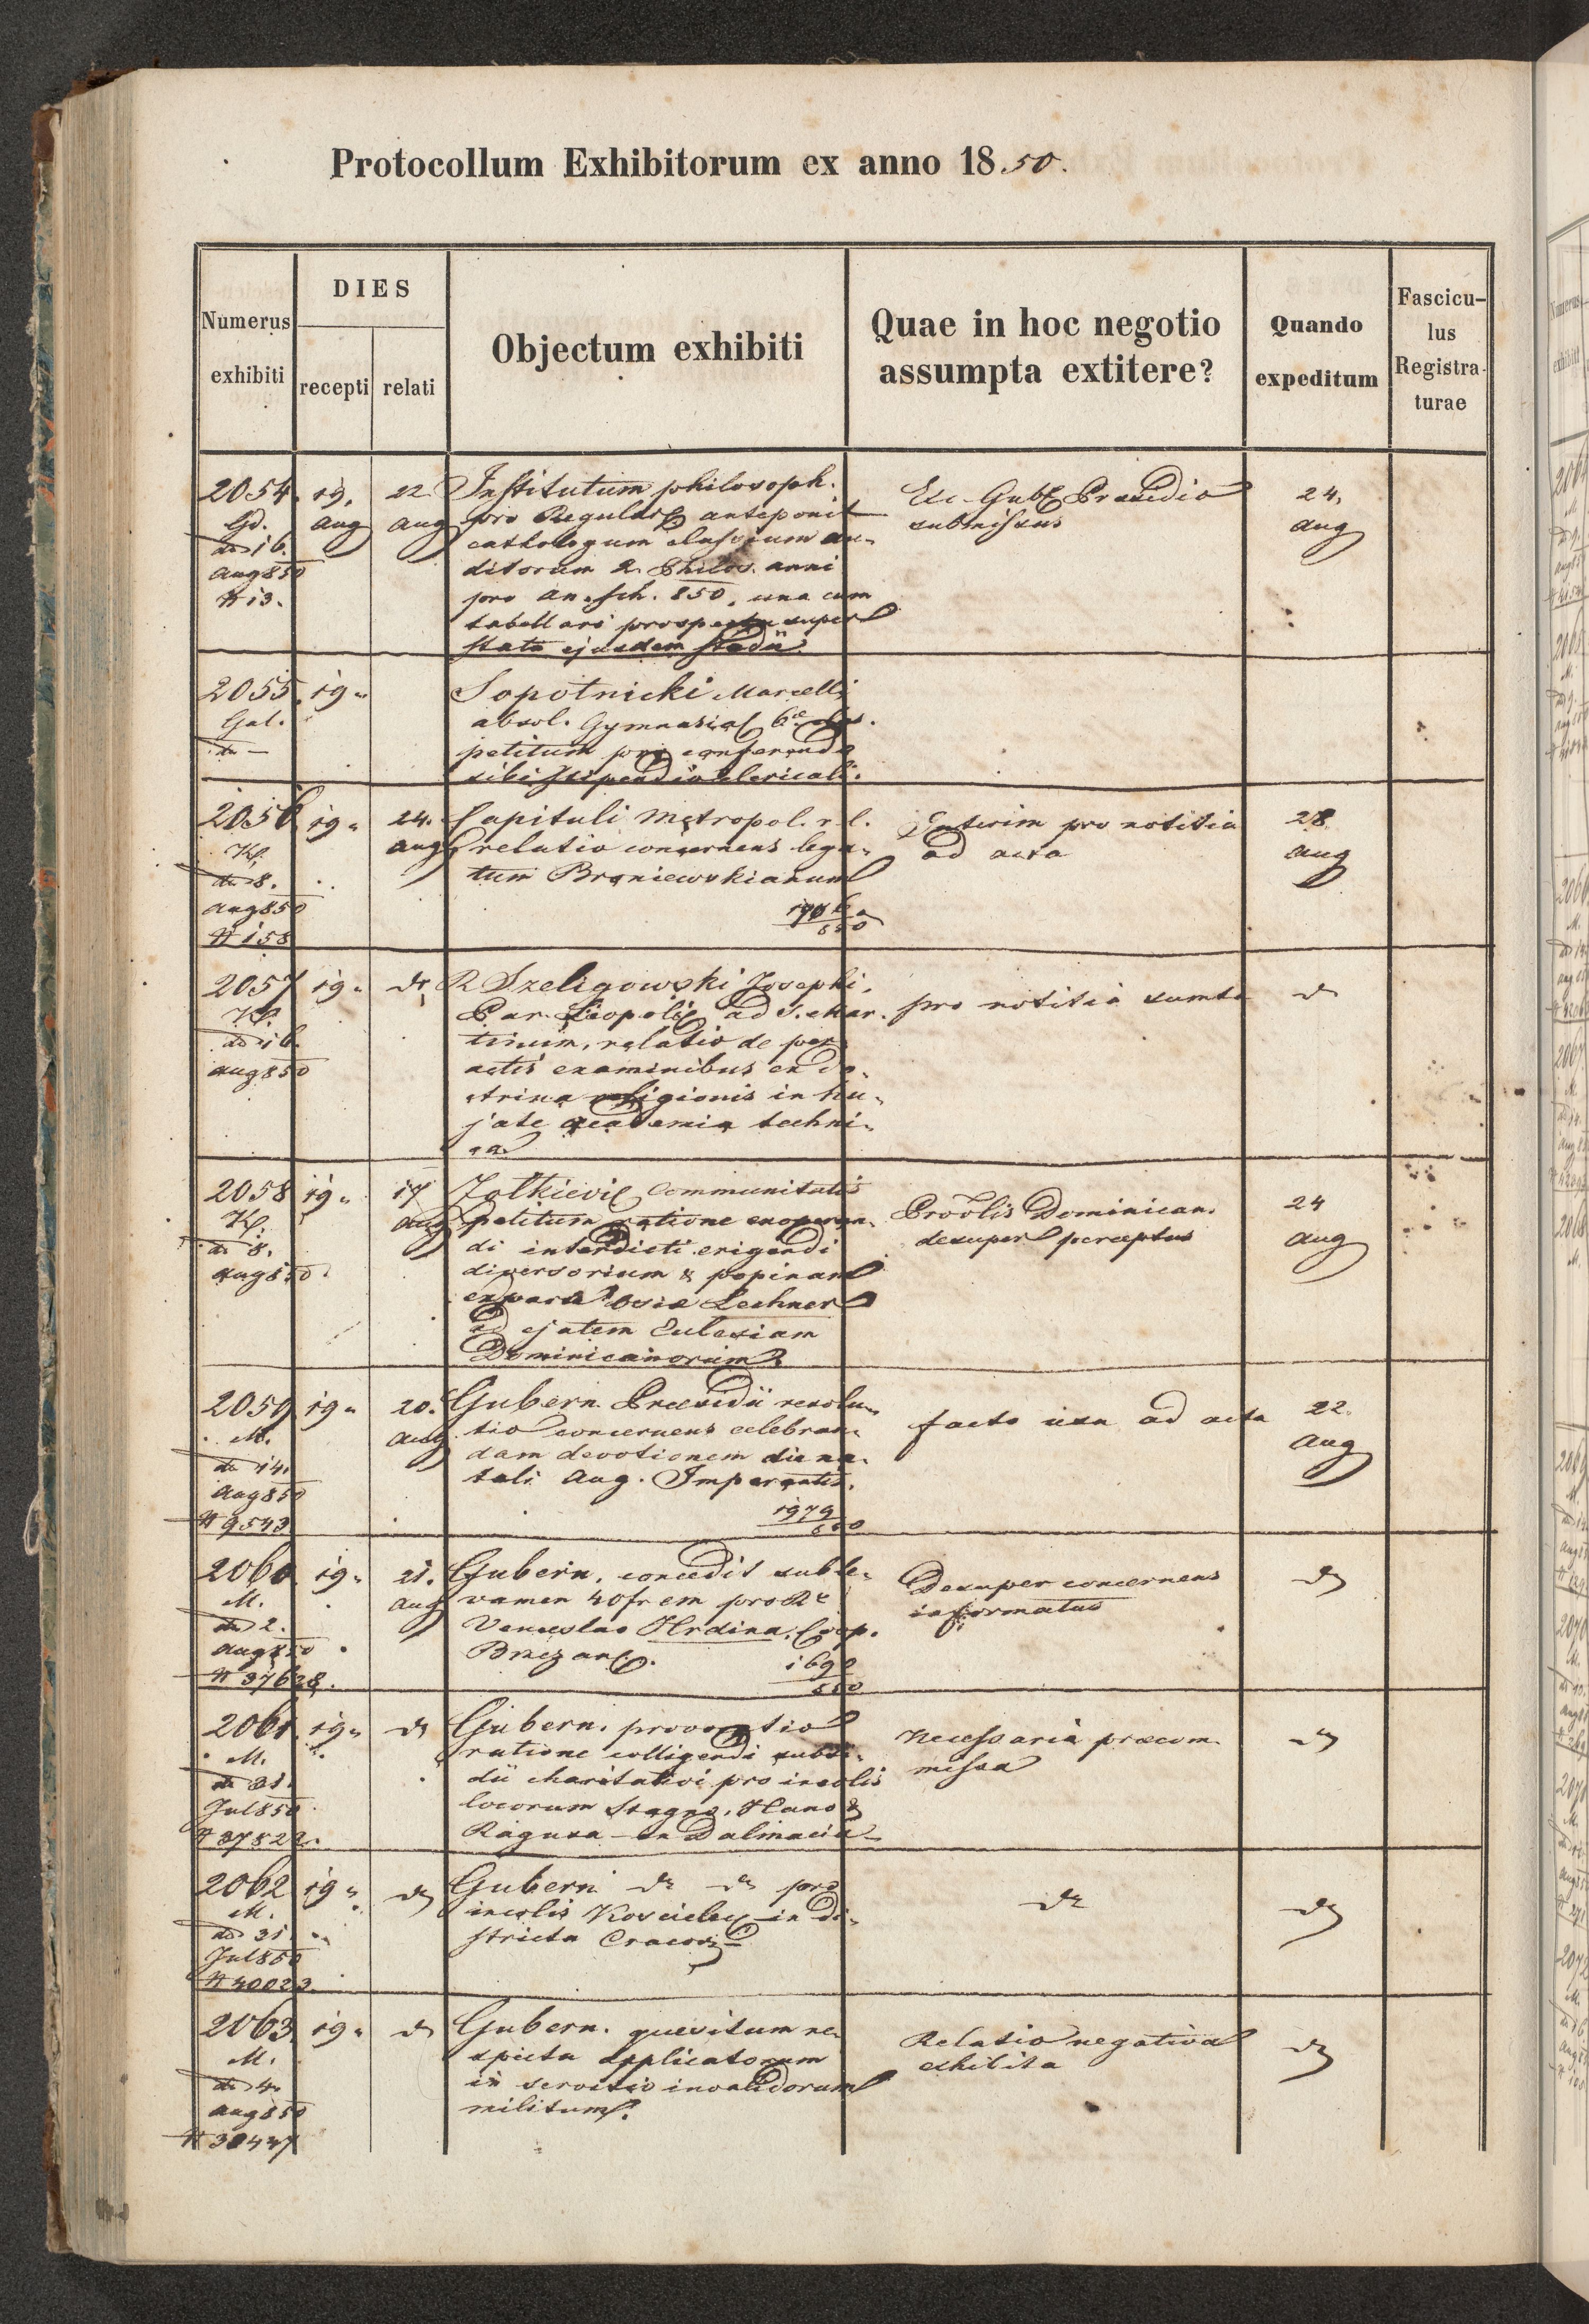 Protocollum Exhibitorum ex anno 1850.
Numerus exhibiti
DIES
recepti
relati
Objectum exhibiti
Quae in hoc negotio assumpta extitere?
Quando expeditum
Fascicu-
lus
Registra-
turae
2054.
Gd.
dto 16.
Aug 850
N 13.
19.
Aug
22
Aug
Institutum philosoph.
pro Regular anteponit
cathologum classium au-
ditorum 2. Philos. anni
pro an. sch. 850, una cum
tabellari prospectu super
statu ejusdem studii.
Exc. Gub. Praesidio
submissus
24.
Aug
2055.
Gal.
dto —
19 "
Sopotnicki Marcelli
absol. Gymnasial 6ae clas.
petitum pro conferendo
sibi stipendio clericali.
2056
Kl.
dto 8.
Aug 850
N 158
19 "
24.
Aug
Capituli Metropol. r. l.
relatio concernens lega-
tum Broniewskianum
850
Interim pro notitia
ad acta
28
Aug
2057
Kl.
dto 16.
Aug 850
19 "
dto
R Szeligowski Josephi,
Par. Leopoli ad S. Mar-
tinum, relatio de per-
actis examinibus ex do-
ctrina religionis in hu-
jate academia techni-
ca
pro notitia sumta
dto
2058
Kl.
dto 8.
Aug 850.
19 "
17
Aug
Zołkievie Communitatis
petitum ratione exoperan-
di interdicti erigendi
diversorium & popinam
ex parte Osia Lechner
ad ejatem Eclesiam
Dominicanorum
Provlis Dominican.
desuper perceptus
24
Aug
2059
M.
dto 14.
Aug 850
N 9543
19 "
20.
Aug
Gubern. Praesidii resolu-
tio concernens celebran-
dam devotionem die na-
tali Aug. Imperantis.
1979
850
facto usu ad acta
22.
Aug
2060
M.
dto 2.
Aug 850
N 37628.
19 "
21.
Aug
Gubern. concedit suble-
vamen 40 fr cm pro R
Venceslao Hrdina, Coop.
Brzezan.
1690
850
Desuper concernens
informatus
dto
2061
M.
dto 31.
Jul 850
N 37822.
19 "
dto
Gubern. provocatio
ratione colligendi subsi-
dii charitativi pro incolis
locorum Stagno, Slano &
Ragusa in Dalmacia
necessaria praecom-
missa
dto
2062
M.
dto 31.
Jul 850
N 40023.
19 "
dto
Gubern dto dto pro
incolis Koscielec in di-
strictu Cracov.
dto
dto
2063
M.
dto 4.
Aug 850
19 "
dto
Gubern. quesitum re-
spectu applicatorum
in servitio invalidorum
militum.
Relatio negativa
exhibita
dto